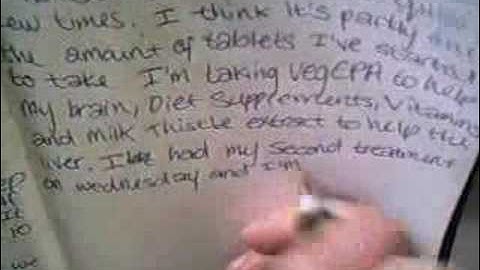 few times. I think it's partly due
the amount of tablets I've started
to take I'm taking VegEPA to help
my brain, Diet Supplements, Vitamins
and Milk Thistle extract to help the
liver. I had my second treatment
on wednesday and I'm
of
It
10
we